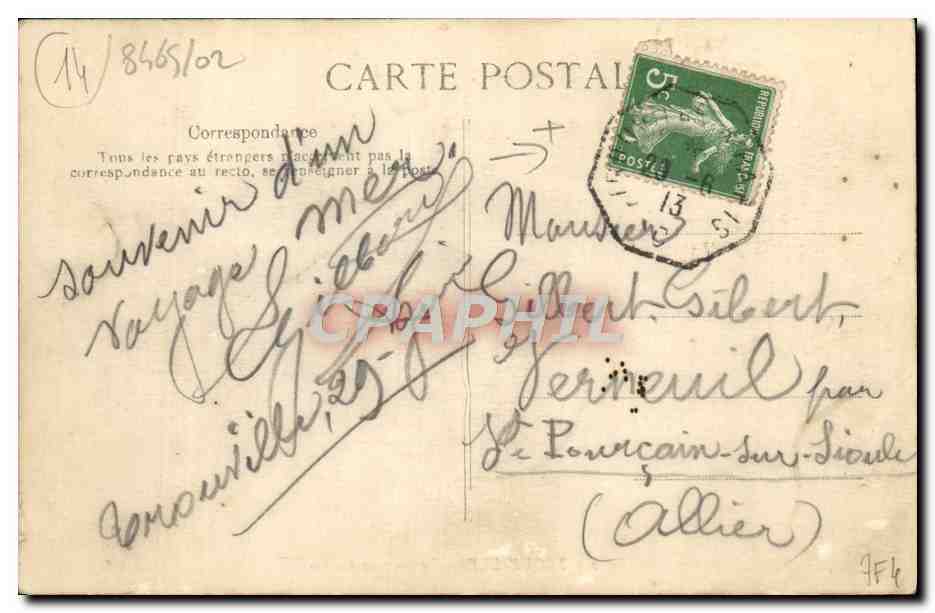 14
8465/02
CARTE POSTAL
Correspondance
Tous les pays étrangers n'acceptent pas la
correspondance au recto, se renseigner à la Poste
souvenir d'un
voyage mer.
Trouville, 29
RÉPUBLIQUE FRANÇAISE
5c
POSTES
6
13
Monsieur
Gilbert Gibert,
Verneuil par
St Pourçain-sur-Sioule
(Allier)
CPAPHIL
7F4